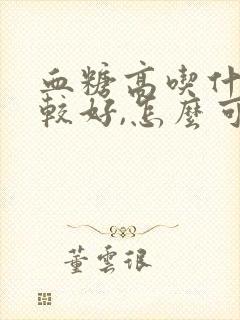 血糖高喫什
較好,怎麼可
董雲很